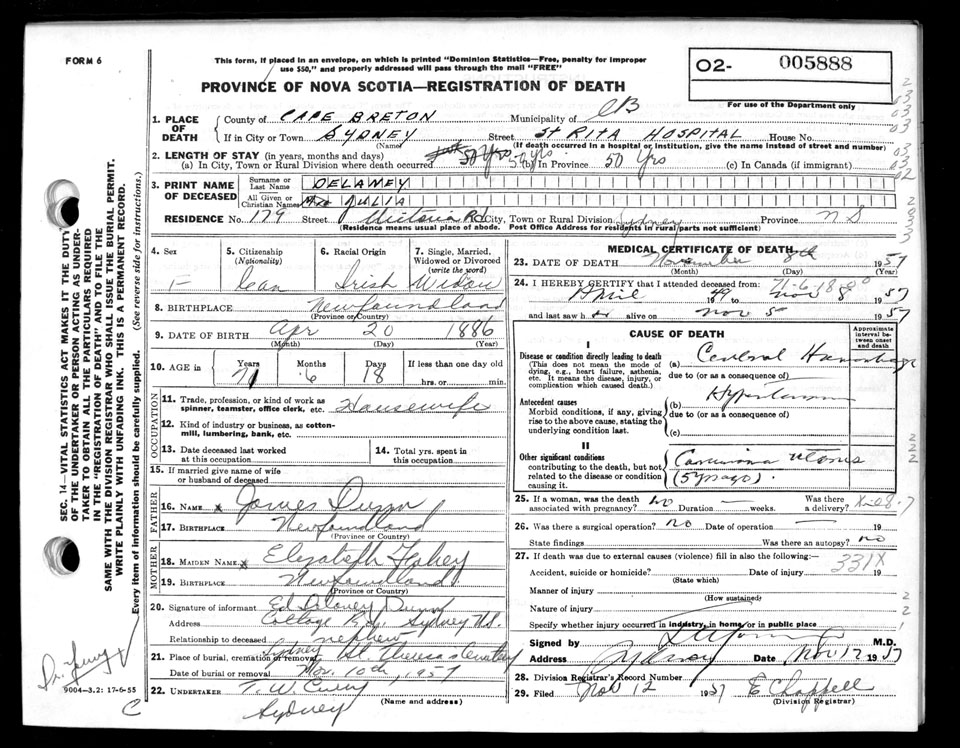 FORM 6
This form, if placed in an envelope, on which is printed "Dominion Statistics—Free, penalty for improper
use $50," and properly addressed will pass through the mail "FREE"
O2- 005888
PROVINCE OF NOVA SCOTIA—REGISTRATION OF DEATH
For use of the Department only
1. PLACE OF DEATH
County of CAPE BRETON Municipality of CB
If in City or Town SYDNEY Street St RITA HOSPITAL House No.
(Name) (If death occurred in a hospital or institution, give the name instead of street and number)
2. LENGTH OF STAY (in years, months and days)
(a) In City, Town or Rural Division where death occurred 50 yrs (b) In Province 50 Yrs (c) In Canada (if immigrant)
3. PRINT NAME OF DECEASED
Surname or Last Name DELANEY
All Given or Christian Names Mrs JULIA
RESIDENCE No. 179 Street Victoria Rd City, Town or Rural Division Sydney Province N S
(Residence means usual place of abode. Post Office Address for residents in rural parts not sufficient)
4. Sex F
5. Citizenship (Nationality) Can
6. Racial Origin Irish
7. Single, Married, Widowed or Divorced (write the word) Widow
8. BIRTHPLACE Newfoundland
(Province or Country)
9. DATE OF BIRTH Apr 20 1886
(Month) (Day) (Year)
10. AGE in Years 71 Months 6 Days 18 If less than one day old
hrs. or min.
OCCUPATION
11. Trade, profession, or kind of work as spinner, teamster, office clerk, etc. Housewife
12. Kind of industry or business, as cotton-mill, lumbering, bank, etc.
13. Date deceased last worked at this occupation
14. Total yrs. spent in this occupation
15. If married give name of wife or husband of deceased
FATHER
16. NAME x James Dunn
17. BIRTHPLACE Newfoundland
(Province or Country)
MOTHER
18. MAIDEN NAME x Elizabeth Fahey
19. BIRTHPLACE Newfoundland
(Province or Country)
20. Signature of informant Ed Delaney Dunn
Address College Rd. Sydney N.S.
Relationship to deceased nephew
21. Place of burial, cremation or removal Sydney St Theresa Cemetery
Date of burial or removal Nov. 10th, 1957
22. UNDERTAKER T. W. Curry
Sydney
(Name and address)
MEDICAL CERTIFICATE OF DEATH
23. DATE OF DEATH November 8th 1957
(Month) (Day) (Year)
24. I HEREBY CERTIFY that I attended deceased from:
April 1949 to Nov 8 1957
and last saw h er alive on Nov 5 1957
CAUSE OF DEATH
Approximate interval between onset and death
I
Disease or condition directly leading to death
(This does not mean the mode of dying, e.g., heart failure, asthenia, etc. It means the disease, injury, or complication which caused death.)
(a) Cerebral Hemorrhage
due to (or as a consequence of)
Antecedent causes
Morbid conditions, if any, giving rise to the above cause, stating the underlying condition last.
(b) Hypertension
due to (or as a consequence of)
(c)
II
Other significant conditions
contributing to the death, but not related to the disease or condition causing it.
Carcinoma uterus
(5 yrs ago).
25. If a woman, was the death associated with pregnancy? no Duration weeks. Was there a delivery?
26. Was there a surgical operation? no Date of operation — 19
State findings Was there an autopsy? no
27. If death was due to external causes (violence) fill in also the following:—
331X
Accident, suicide or homicide? Date of injury 19
(State which)
Manner of injury
(How sustained)
Nature of injury
Specify whether injury occurred in industry, in home, or in public place
Signed by M.D.
Address Sydney Date Nov 12 1957
28. Division Registrar's Record Number
29. Filed Nov 12 1957 E Chappell
(Division Registrar)
SEC. 14—VITAL STATISTICS ACT MAKES IT THE DUTY
OF THE UNDERTAKER OR PERSON ACTING AS UNDER-
TAKER TO OBTAIN ALL THE PARTICULARS REQUIRED
IN THE "REGISTRATION OF DEATH" AND TO FILE THE
SAME WITH THE DIVISION REGISTRAR WHO SHALL ISSUE THE BURIAL PERMIT.
WRITE PLAINLY WITH UNFADING INK. THIS IS A PERMANENT RECORD.
Every item of information should be carefully supplied. (See reverse side for instructions.)
Dr. Young
9004-3.2: 17-6-55
C